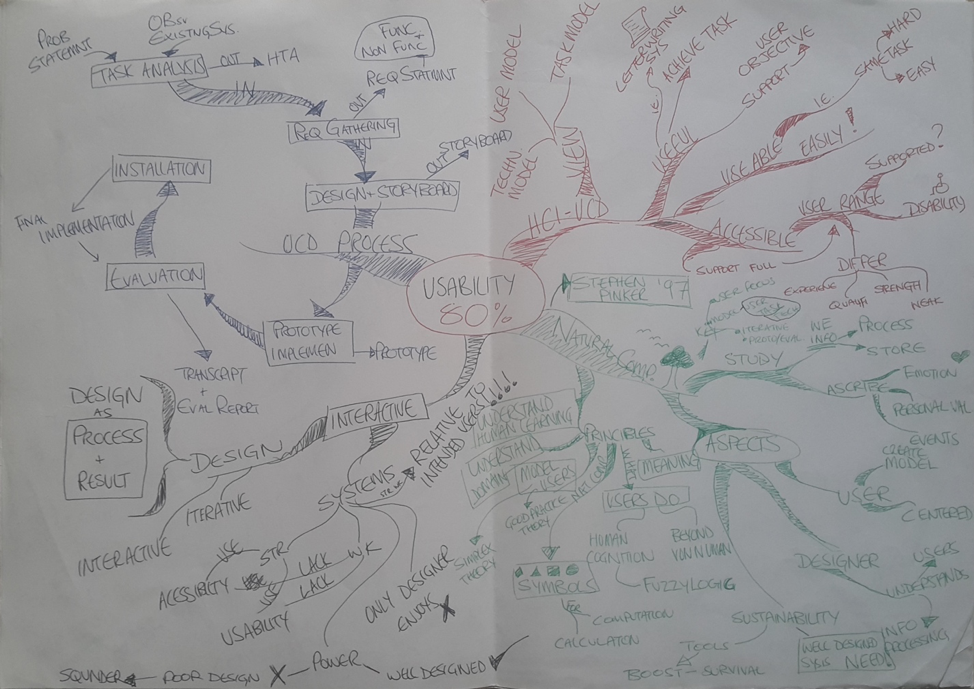 PROB
STATEMNT
OBsv
EXISTNGSYS.
TASK ANALYSIS
OUT
HTA
IN
FUNC
+
NON FUNC
REQ STATMNT
OUT
REQ GATHERING
IN
STORYBOARD
OUT
DESIGN + STORYBOARD
UCD PROCESS
INSTALLATION
FINAL
IMPLEMENTATION
EVALUATION
PROTOTYPE
IMPLEMEN
PROTOTYPE
TRANSCRIPT
+
EVAL REPORT
USABILITY
80%
HCI-UCD
VIEW
USER MODEL
TASK MODEL
TECHN
MODEL
USEFUL
LETTERWRITING
I.E.
ACHIEVE TASK
SUPPORT
USER
OBJECTIVE
USEABLE
EASILY!
I.E.
SAME TASK
HARD
EASY
ACCESSIBLE
SUPPORT FULL
USER RANGE
SUPPORTED?
DISABILITY
DIFFER
EXPERIENCE
QUALIFI
STRENGTH
WEAK
STEPHEN
PINKER '97
NATURAL COMP.
USER FOCUS
ITERATIVE
STUDY
WE
INFO
PROCESS
STORE
ASCRIBE
EMOTION
PERSONAL VAL
EVENTS
ASPECTS
USER
CREATE
MODEL
CENTERED
DESIGNER
USERS
UNDERSTANDS
INFO
PROCESSING
SUSTAINABILITY
WELL DESIGNED
SYSIS NEED!
TOOLS
BOOST
SURVIVAL
PRINCIPLES
UNDERSTAND
HUMAN LEARNING
UNDERSTAND
DOMAIN
MODEL
USERS
GOOD PRACTICE
THEORY
SIMPLEX
THEORY
SYMBOLS
COMPUTATION
CALCULATION
MEANING
USERS DO
HUMAN
COGNITION
BEYOND
FUZZYLOGIC
INTERACTIVE
DESIGN
DESIGN
AS
PROCESS
+
RESULT
INTERACTIVE
ITERATIVE
SYSTEMS
RELATIVE TO
INTENDED USER!!!!!
USE
STR
ACESSIBITY
LACK
WK
USABILITY
LACK
ONLY DESIGNER
ENJOYS X
POWER
WELL DESIGNED
X
POOR DESIGN
SQUNDER